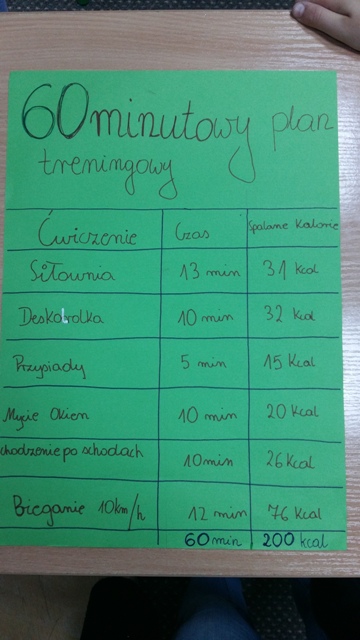 60minutowy plan
treningowy
Ćwiczenie Czas Spalane Kalorie
Siłownia 13 min 31 Kcal
Deskorolka 10 min 32 Kcal
Przysiady 5 min 15 Kcal
Mycie Okien 10 min 20 Kcal
chodzenie po schodach 10min 26 Kcal
Bieganie 10km/h 12 min 76 Kcal
60 min 200 kcal